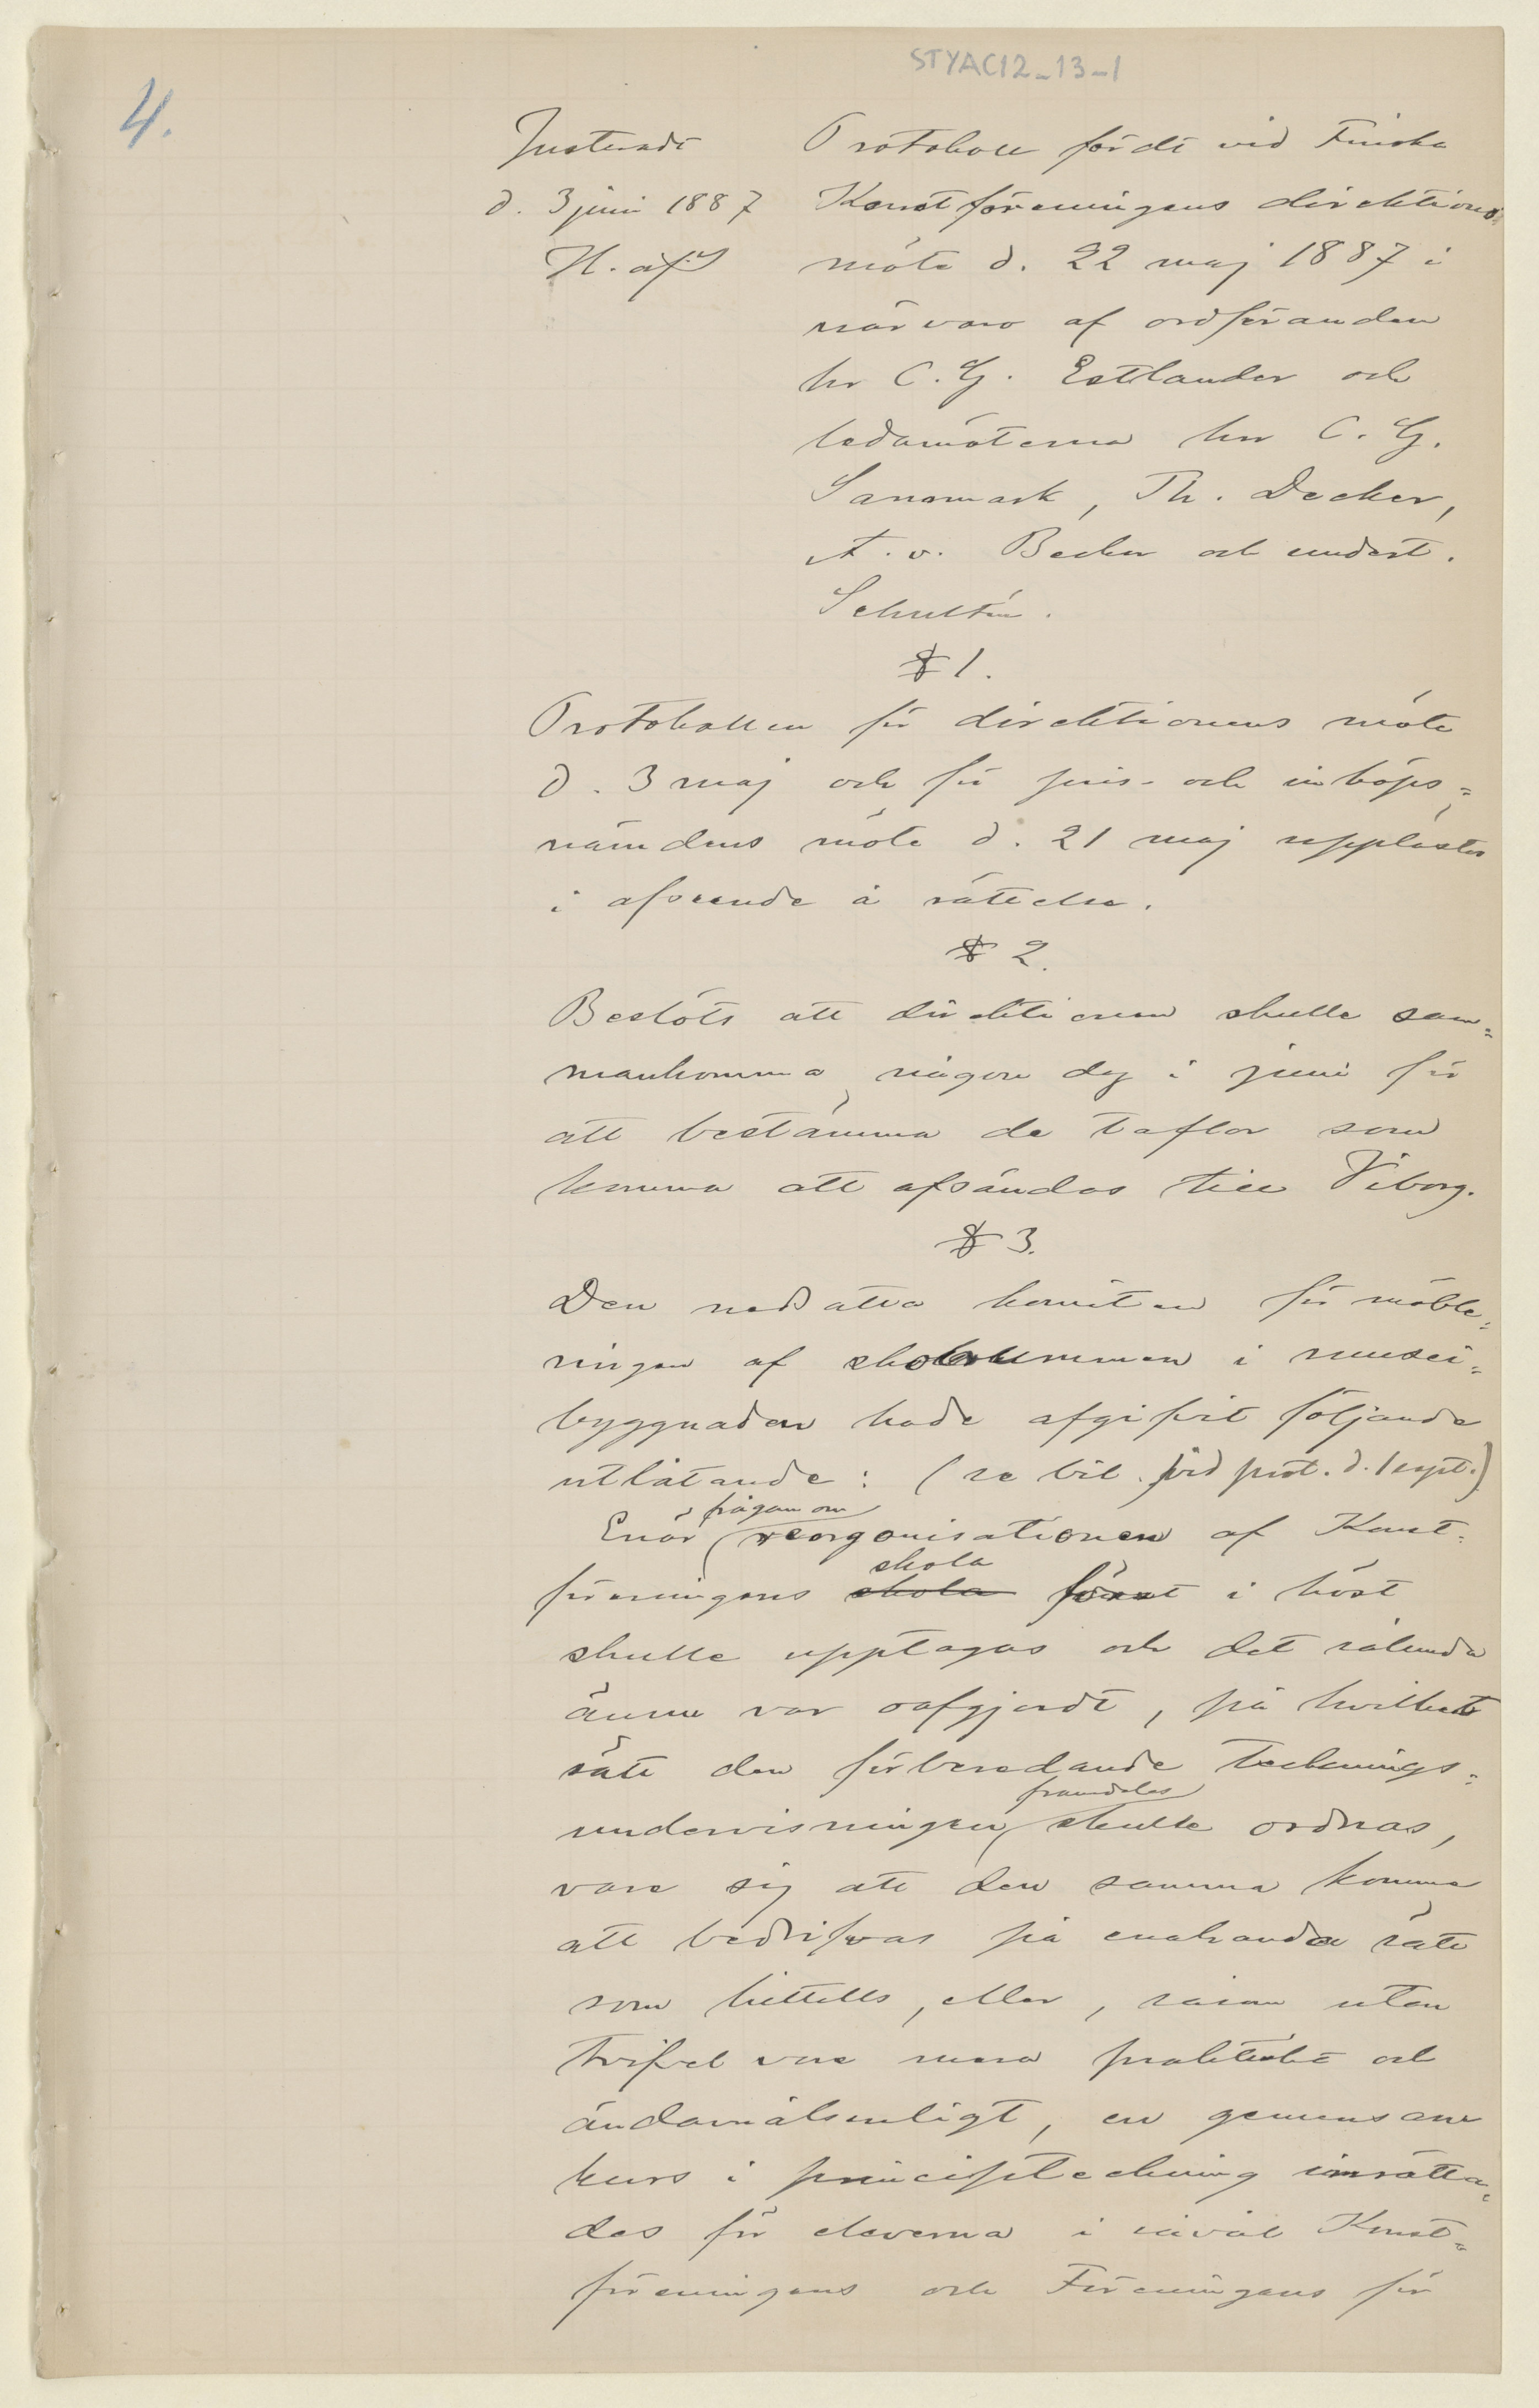 STYAC12-13-1
4.
Justeradt
d. 3 juni 1887
H. af S
Protokoll fördt vid Finska
Konstföreningens direktions-
möte d. 22 maj 1887 i
närvaro af ordföranden
hr C. G. Estlander och
ledamöterna hrr C. G.
Sanmark, Th. Decker,
A. v. Becker och undert.
Schultén.
§ 1.
Protokollen för direktionens möte
d. 3 maj och för pris- och inköps=
nämdens möte d. 21 maj upplästes
i afseende å rättelse.
§ 2.
Beslöts att direktionen skulle sam=
mankomma någon dag i juni för
att bestämma de taflor som
komma att afsändas till Viborg.
§ 3.
Den nedsatta komitén för möble=
ringen af skolrummen i musei=
byggnaden hade afgifvit följande
utlåtande: (se bil. vid prot. d. 1 sept.)
Enär frågan om reorganisationen af Konst=
föreningens skola skola först i höst
skulle upptagas och det sålunda
ännu var oafgjordt, på hvilket
sätt den förberedande tecknings=
undervisningen framdeles skulle ordnas,
vare sig att den samma komme
att bedrifvas på enahanda sätt
som hittills, eller, såsom utan
tvifvel vore mera praktiskt och
ändamålsenligt, en gemensam
kurs i principteckning inrätta=
des för eleverna i såväl Konst=
föreningens och Föreningens för